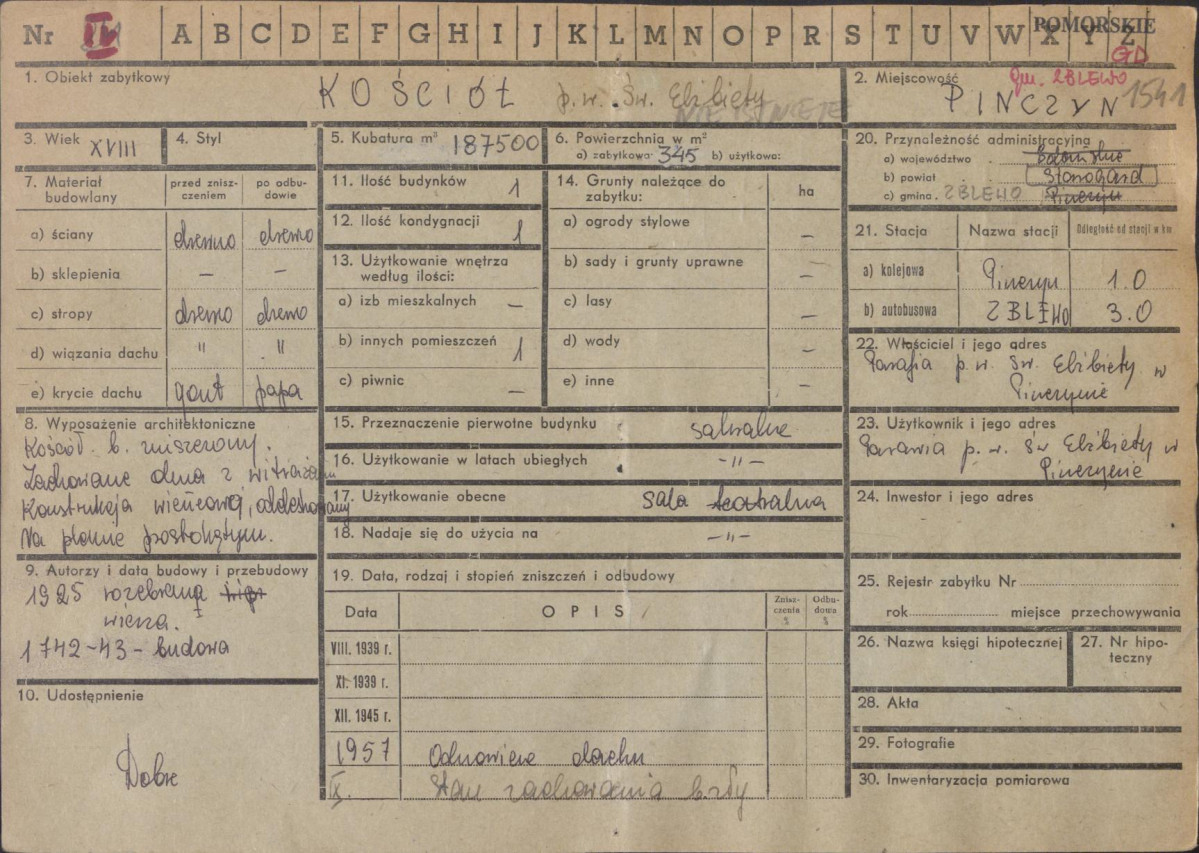 Nr II A B C D E F G H I J K L M N O P R S T U V W X Y Z
POMORSKIE
GD
1. Obiekt zabytkowy
KOŚCIÓŁ p.w. Św. Elżbiety
NIE ISTNIEJE
2. Miejscowość
gm. ZBLEWO
PINCZYN 1541
3. Wiek XVIII
4. Styl
5. Kubatura m³ 187500
6. Powierzchnia w m²
a) zabytkowa 345 b) użytkowa:
7. Materiał budowlany
przed znisz-
czeniem
po odbu-
dowie
a) ściany drewno drewno
b) sklepienia – –
c) stropy drewno drewno
d) wiązania dachu " "
e) krycie dachu gont papa
8. Wyposażenie architektoniczne
Kościół b. zniszczony.
Zachowane okna z witrażami
Konstrukcja wieńcowa, odeskowany
Na planie prostokątnym.
9. Autorzy i data budowy i przebudowy
1925 rozebraną
wieża.
1742-43 - budowa
10. Udostępnienie
Dobre
11. Ilość budynków 1
12. Ilość kondygnacji 1
13. Użytkowanie wnętrza
według ilości:
a) izb mieszkalnych –
b) innych pomieszczeń 1
c) piwnic –
14. Grunty należące do
zabytku:
ha
a) ogrody stylowe –
b) sady i grunty uprawne –
c) lasy –
d) wody –
e) inne –
15. Przeznaczenie pierwotne budynku sakralne
16. Użytkowanie w latach ubiegłych -"-
17. Użytkowanie obecne sala teatralna
18. Nadaje się do użycia na -"-
19. Data, rodzaj i stopień zniszczeń i odbudowy
Data OPIS
Znisz-
czenia
%
Odbu-
dowa
%
VIII. 1939 r.
XI. 1939 r.
XII. 1945 r.
1957 Odnowiene dachu
IX. Stan zachowania b. zły
20. Przynależność administracyjną
a) województwo Gdańskie
b) powiat Starogard
c) gmina ZBLEWO Pinczyn
21. Stacja Nazwa stacji Odległość od stacji w km
a) kolejowa Pinczyn 1.0
b) autobusowa ZBLEWO 3.0
22. Właściciel i jego adres
Parafia p.w. Św. Elżbiety w
Pinczynie
23. Użytkownik i jego adres
Parawia p.w. Św Elżbiety w
Pinczynie
24. Inwestor i jego adres
25. Rejestr zabytku Nr
rok miejsce przechowywania
26. Nazwa księgi hipotecznej
27. Nr hipo-
teczny
28. Akta
29. Fotografie
30. Inwentaryzacja pomiarowa